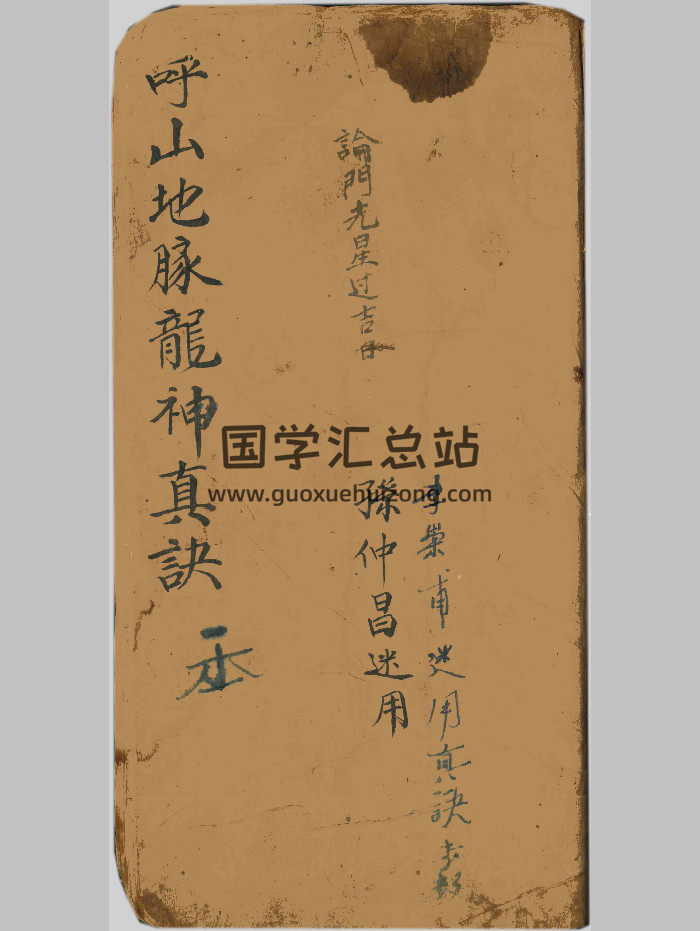 李榮甫迷用真訣
孫仲昌迷用
論門光星过吉日
呼山地脉龍神真訣
国学汇总站
www.guoxuehuizong.com